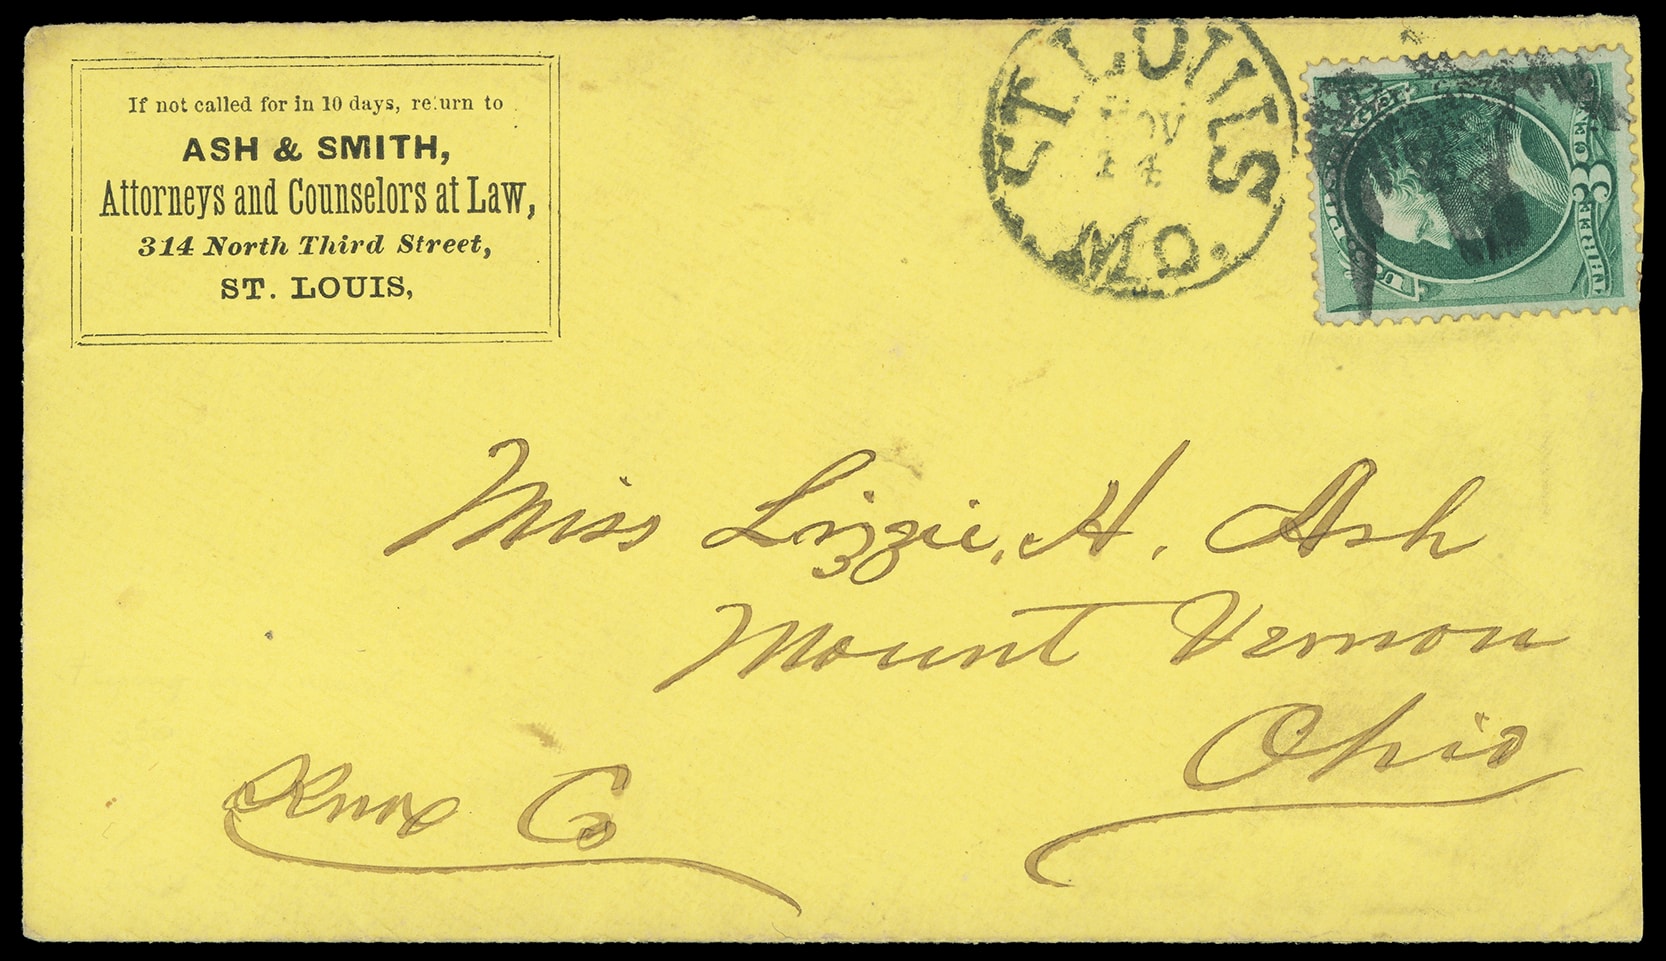 If not called for in 10 days, return to
ASH & SMITH,
Attorneys and Counselors at Law,
314 North Third Street,
ST. LOUIS,
ST LOUIS
NOV
14
MO.
THREE 3 CENTS
Miss Lizzie, H. Ash
Mount Vernon
Ohio
Knox Co